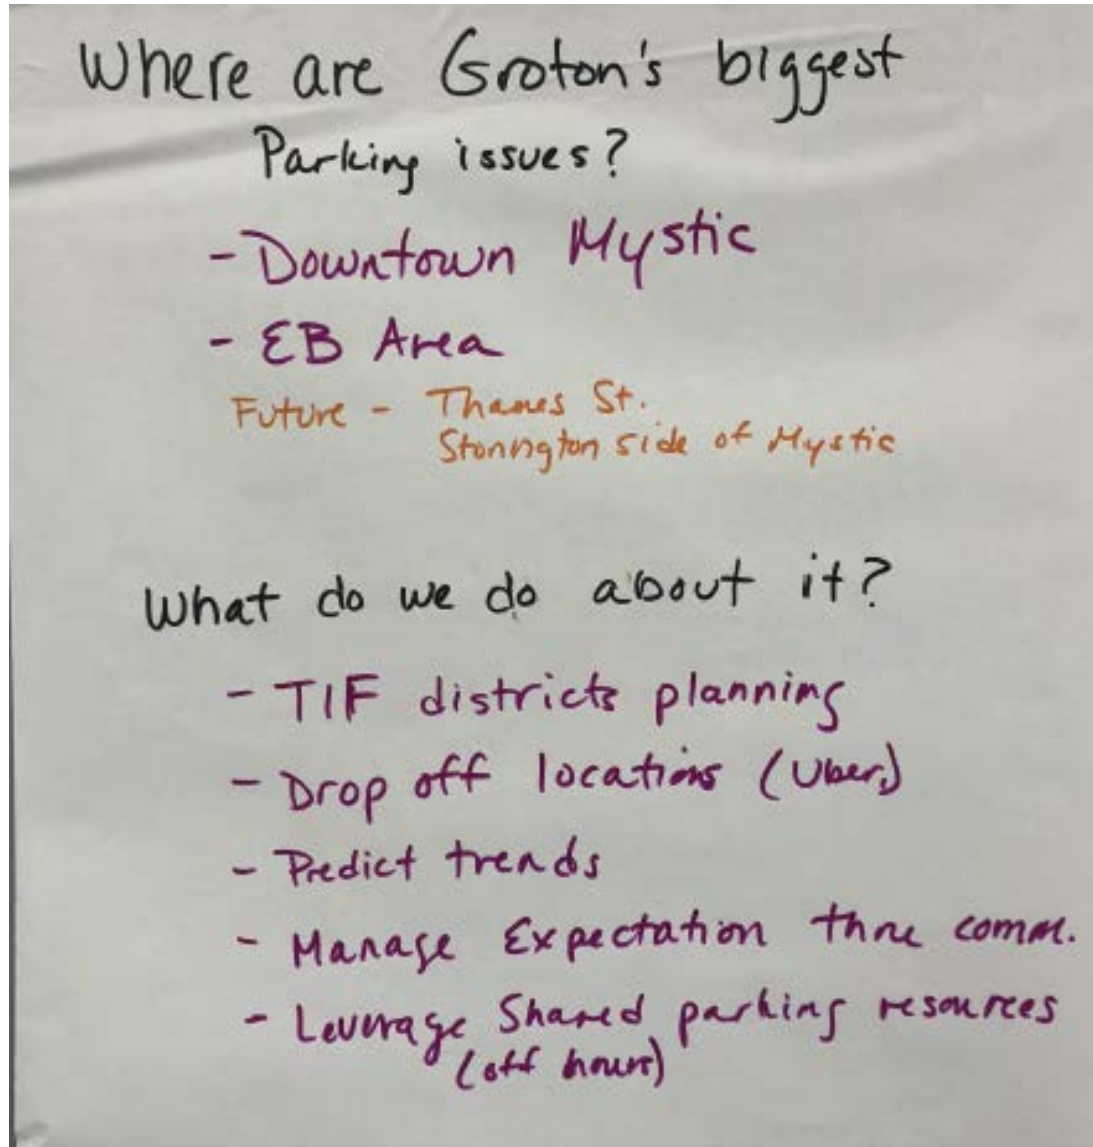 Where are Groton's biggest
Parking issues?
- Downtown Mystic
- EB Area
Future - Thames St.
Stonington side of Mystic
What do we do about it?
- TIF districts planning
- Drop off locations (Uber)
- Predict trends
- Manage Expectation thru comm.
- Leverage Shared parking resources
(off hours)